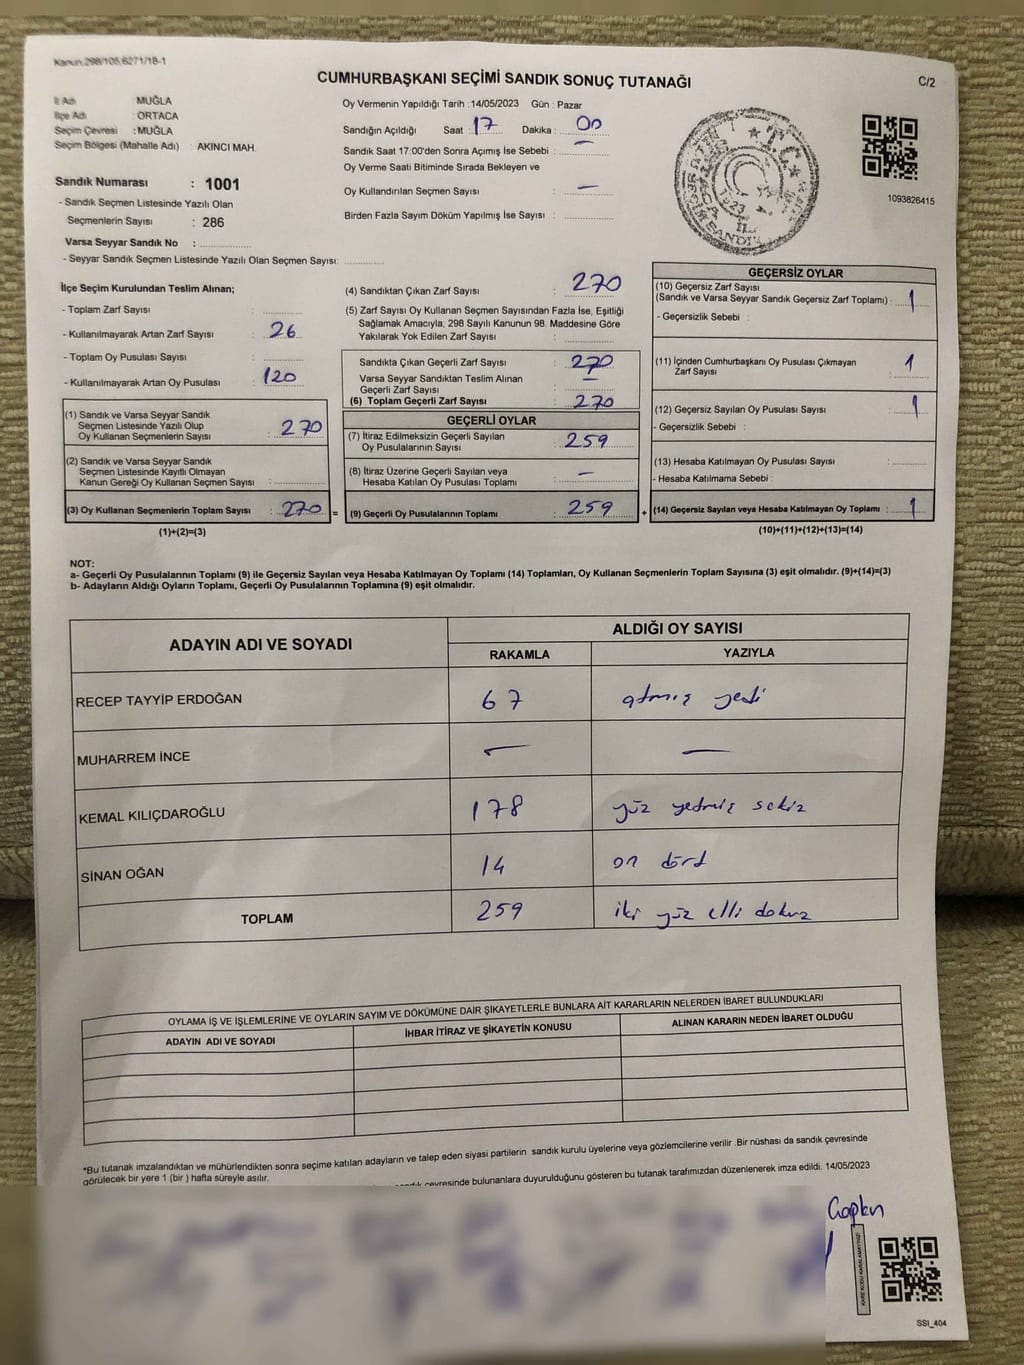 Kanun.298/105,6271/18-1
CUMHURBAŞKANI SEÇİMİ SANDIK SONUÇ TUTANAĞI
C/2
İl Adı MUĞLA
İlçe Adı : ORTACA
Seçim Çevresi : MUĞLA
Seçim Bölgesi (Mahalle Adı) : AKINCI MAH.
Sandık Numarası : 1001
- Sandık Seçmen Listesinde Yazılı Olan
Seçmenlerin Sayısı : 286
Varsa Seyyar Sandık No :
- Seyyar Sandık Seçmen Listesinde Yazılı Olan Seçmen Sayısı:
Oy Vermenin Yapıldığı Tarih :14/05/2023 Gün : Pazar
Sandığın Açıldığı Saat : 17 Dakika : 00
Sandık Saat 17:00'den Sonra Açımış İse Sebebi : —
Oy Verme Saati Bitiminde Sırada Bekleyen ve
Oy Kullandırılan Seçmen Sayısı : —
Birden Fazla Sayım Döküm Yapılmış İse Sayısı :
1093826415
İlçe Seçim Kurulundan Teslim Alınan;
- Toplam Zarf Sayısı :
- Kullanılmayarak Artan Zarf Sayısı : 26
- Toplam Oy Pusulası Sayısı :
- Kullanılmayarak Artan Oy Pusulası : 120
(1) Sandık ve Varsa Seyyar Sandık
Seçmen Listesinde Yazılı Olup
Oy Kullanan Seçmenlerin Sayısı : 270
(2) Sandık ve Varsa Seyyar Sandık
Seçmen Listesinde Kayıtlı Olmayan
Kanun Gereği Oy Kullanan Seçmen Sayısı :
(3) Oy Kullanan Seçmenlerin Toplam Sayısı : 270
(1)+(2)=(3)
=
(4) Sandıktan Çıkan Zarf Sayısı : 270
(5) Zarf Sayısı Oy Kullanan Seçmen Sayısından Fazla İse, Eşitliği
Sağlamak Amacıyla; 298 Sayılı Kanunun 98. Maddesine Göre
Yakılarak Yok Edilen Zarf Sayısı :
Sandıkta Çıkan Geçerli Zarf Sayısı : 270
Varsa Seyyar Sandıktan Teslim Alınan
Geçerli Zarf Sayısı : —
(6) Toplam Geçerli Zarf Sayısı : 270
GEÇERLİ OYLAR
(7) İtiraz Edilmeksizin Geçerli Sayılan
Oy Pusulalarının Sayısı : 259
(8) İtiraz Üzerine Geçerli Sayılan veya
Hesaba Katılan Oy Pusulası Toplamı : —
(9) Geçerli Oy Pusulalarının Toplamı : 259
+
GEÇERSİZ OYLAR
(10) Geçersiz Zarf Sayısı
(Sandık ve Varsa Seyyar Sandık Geçersiz Zarf Toplamı) : 1
- Geçersizlik Sebebi :
(11) İçinden Cumhurbaşkanı Oy Pusulası Çıkmayan
Zarf Sayısı : 1
(12) Geçersiz Sayılan Oy Pusulası Sayısı : 1
- Geçersizlik Sebebi :
(13) Hesaba Katılmayan Oy Pusulası Sayısı :
- Hesaba Katılmama Sebebi :
(14) Geçersiz Sayılan veya Hesaba Katılmayan Oy Toplamı : 1
(10)+(11)+(12)+(13)=(14)
NOT:
a- Geçerli Oy Pusulalarının Toplamı (9) ile Geçersiz Sayılan veya Hesaba Katılmayan Oy Toplamı (14) Toplamları, Oy Kullanan Seçmenlerin Toplam Sayısına (3) eşit olmalıdır. (9)+(14)=(3)
b- Adayların Aldığı Oyların Toplamı, Geçerli Oy Pusulalarının Toplamına (9) eşit olmalıdır.
ADAYIN ADI VE SOYADI
ALDIĞI OY SAYISI
RAKAMLA YAZIYLA
RECEP TAYYİP ERDOĞAN 67 atmış yedi
MUHARREM İNCE — —
KEMAL KILIÇDAROĞLU 178 yüz yetmiş sekiz
SİNAN OĞAN 14 on dört
TOPLAM 259 iki yüz elli dokuz
OYLAMA İŞ VE İŞLEMLERİNE VE OYLARIN SAYIM VE DÖKÜMÜNE DAİR ŞİKAYETLERLE BUNLARA AİT KARARLARIN NELERDEN İBARET BULUNDUKLARI
ADAYIN ADI VE SOYADI İHBAR İTİRAZ VE ŞİKAYETİN KONUSU ALINAN KARARIN NEDEN İBARET OLDUĞU
*Bu tutanak imzalandıktan ve mühürlendikten sonra seçime katılan adayların ve talep eden siyasi partilerin sandık kurulu üyelerine veya gözlemcilerine verilir .Bir nüshası da sandık çevresinde
görülecek bir yere 1 (bir ) hafta süreyle asılır.
sandık çevresinde bulunanlara duyurulduğunu gösteren bu tutanak tarafımızdan düzenlenerek imza edildi. 14/05/2023
KARE KODU KARALAMAYINIZ!
SSI_404